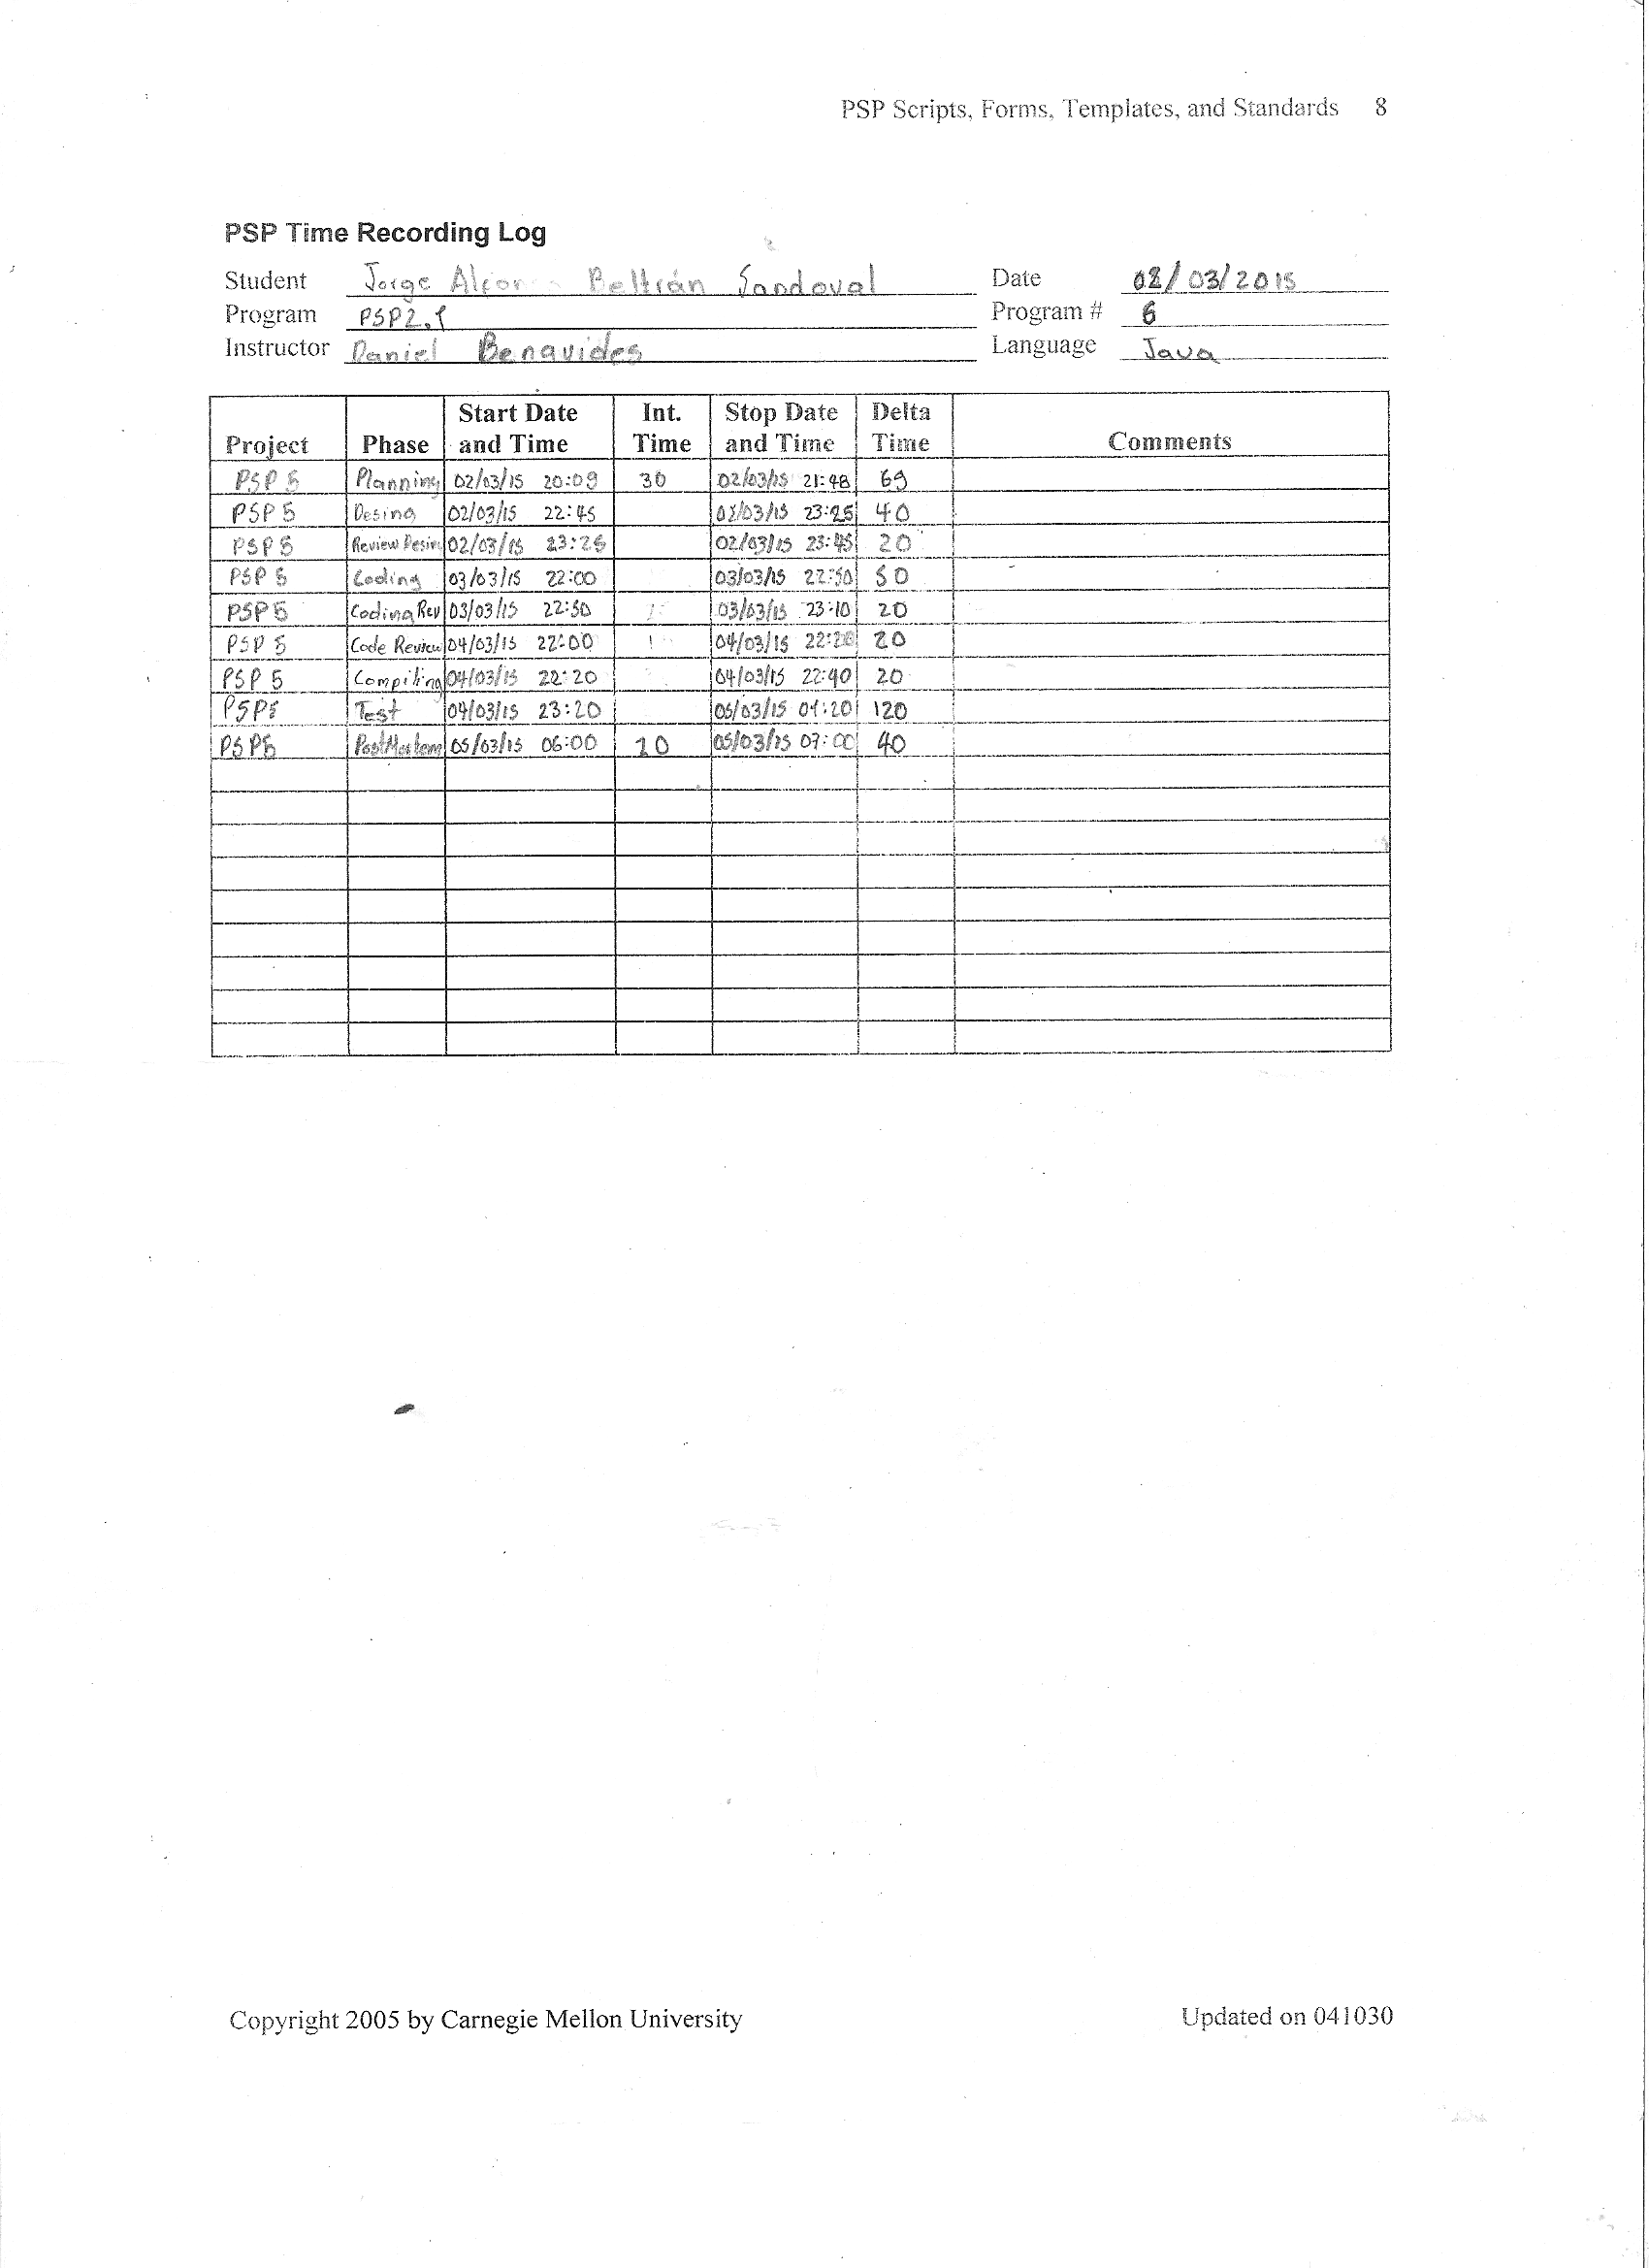 PSP Scripts, Forms, Templates, and Standards 8
PSP Time Recording Log
Student Jorge Beltrán Sandoval Date 02/03/2015
Program PSP2.1 Program # 6
Instructor Daniel Benavides Language Java
Project Phase Start Date and Time Int. Time Stop Date and Time Delta Time Comments
PSP 5 Planning 02/03/15 20:09 30 02/03/15 21:48 69
PSP 5 Desing 02/03/15 22:45 02/03/15 23:25 40
PSP 5 Review Desing 02/03/15 23:25 02/03/15 23:45 20
PSP 5 Coding 03/03/15 22:00 03/03/15 22:50 50
PSP 5 Coding Rev 03/03/15 22:50 03/03/15 23:10 20
PSP 5 Code Review 04/03/15 22:00 04/03/15 22:20 20
PSP 5 Compiling 04/03/15 22:20 04/03/15 22:40 20
PSP5 Test 04/03/15 23:20 05/03/15 01:20 120
PSP5 PostMortem 05/03/15 06:00 10 05/03/15 07:00 40
Copyright 2005 by Carnegie Mellon University Updated on 041030